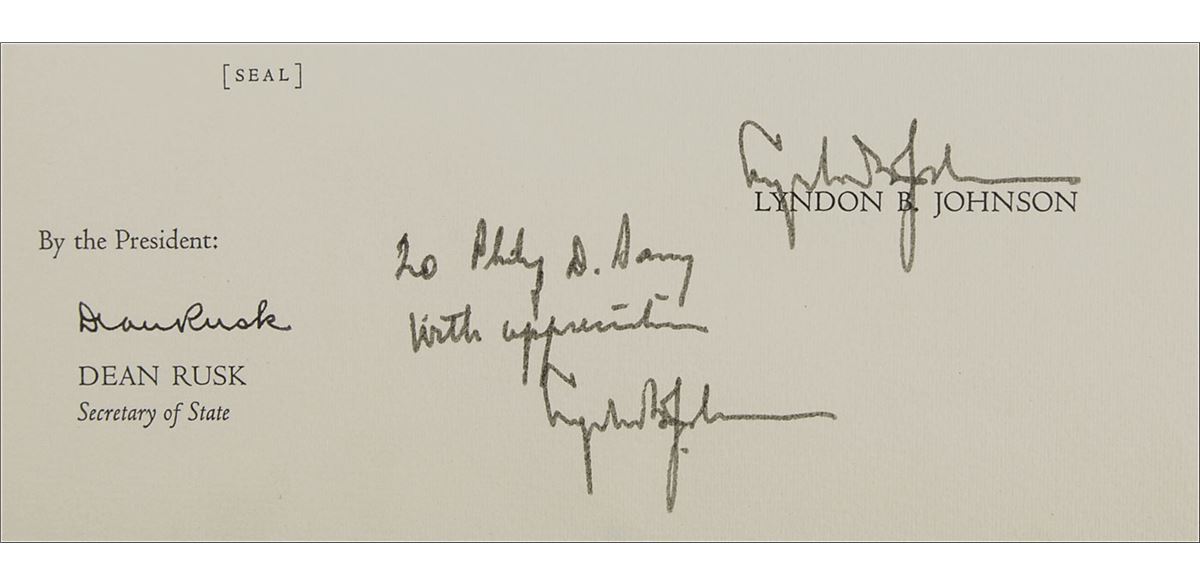 [SEAL]
Lyndon B. Johnson
LYNDON B. JOHNSON
By the President:
Dean Rusk
DEAN RUSK
Secretary of State
To Philip D. Sang
With appreciation
Lyndon B. Johnson